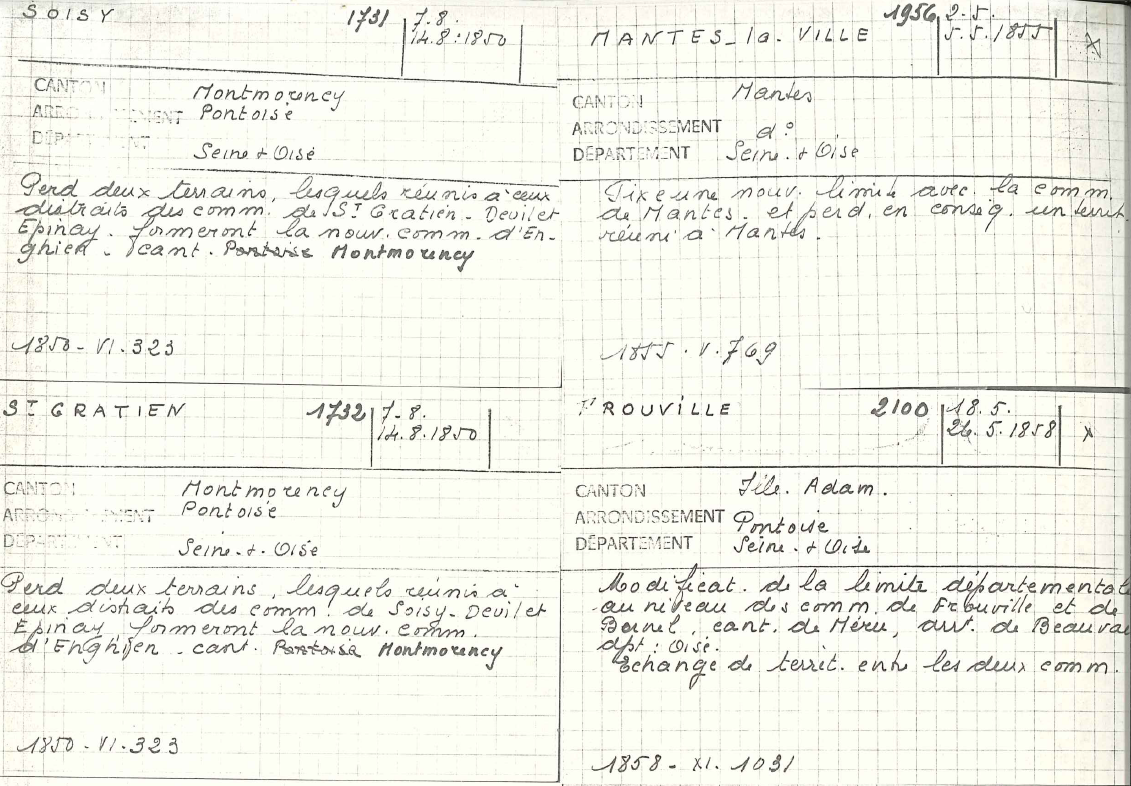 SOISY
1731
7.8.
14.8.1850
CANTON Montmorency
ARRONDISSEMENT Pontoise
DÉPARTEMENT Seine + Oise
Perd deux terrains, lesquels réunis à ceux
distraits des comm. de St Gratien - Deuil et
Epinay. formeront la nouv. comm. d'En-
ghien - cant. Pontoise Montmorency
1850 - VI. 323
MANTES-la-VILLE
1956
2.5.
5.5.1855
X
CANTON Mantes
ARRONDISSEMENT d°
DÉPARTEMENT Seine + Oise
Fixe une nouv. limite avec la comm.
de Mantes. et perd, en conség. un territ.
réuni à Mantes.
1855. V. 769
ST GRATIEN
1732
7.8.
14.8.1850
CANTON Montmorency
ARRONDISSEMENT Pontoise
DÉPARTEMENT Seine. +. Oise
Perd deux terrains, lesquels réunis à
ceux distraits des comm. de Soisy - Deuil et
Epinay, formeront la nouv. comm.
d'Enghien - cant. Pontoise Montmorency
1850 - VI. 323
FROUVILLE
2100
18.5.
26.5.1858
X
CANTON Isle. Adam.
ARRONDISSEMENT Pontoise
DÉPARTEMENT Seine. + Oise
Modificat. de la limite départementale
au niveau des comm. de Frouville et de
Bornel, cant. de Méru, arr. de Beauvai
dpt : Oise.
Echange de territ. entre les deux comm.
1858 - XI. 1031